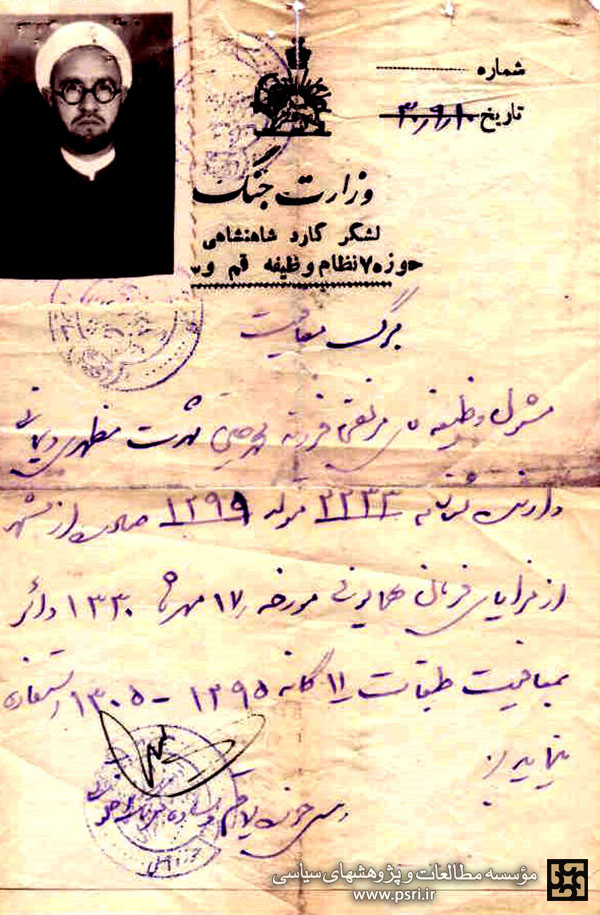 شماره
تاریخ ۳۰٫۹٫۱۰
وزارت جنگ
لشگر گارد شاهنشاهی
حوزه ۷ نظام وظیفه قم
برگ معافیت
مشمول وظیفه آقای مرتضی فرزند محمدحسین شهرت مطهری
دارنده شناسنامه ۲۲۳۳ متولد ۱۲۹۹ صادره از مشهد
از مزایای فرمان همایونی مورخه ۱۷ مهرماه ۱۳۳۰ دائر
بمعافیت طبقات ۱۱ گانه ۱۲۹۵ – ۱۳۰۵ استفاده
نماید
رئیس حوزه ۷ قم
مؤسسه مطالعات و پژوهشهای سیاسی
www.psri.ir